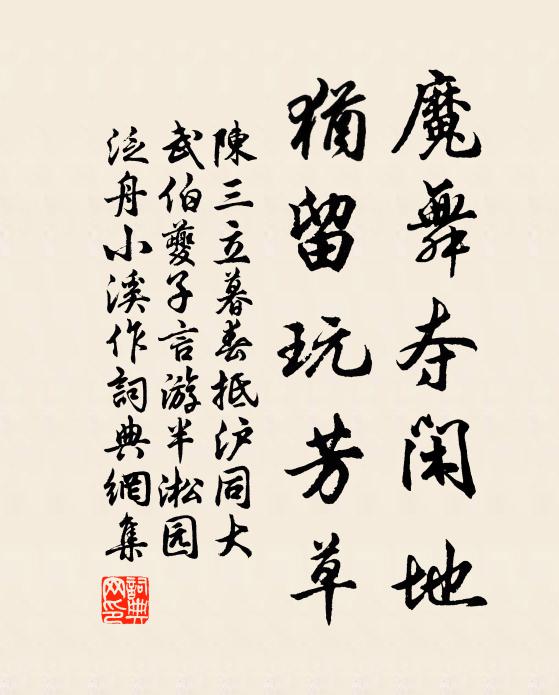 魔舞夺闲地
犹留玩芳草
陳三立暮春抵沪同大
武伯夔子言游半淞园
泛舟小溪作詞典網集
詞典網印